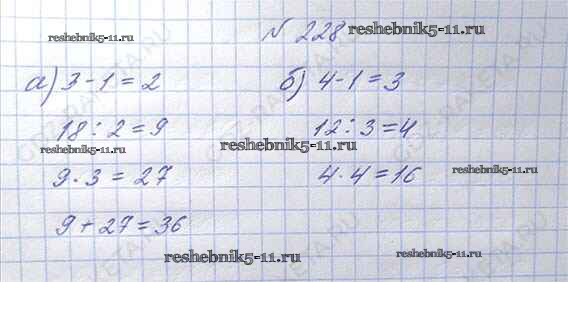 № 228
reshebnik5-11.ru
reshebnik5-11.ru
а) 3-1=2
18:2=9
reshebnik5-11.ru
9·3=27
9+27=36
б) 4-1=3
12:3=4
reshebnik5-11.ru
4·4=16
reshebnik5-11.ru
reshebnik5-11.ru
reshebnik5-11.ru